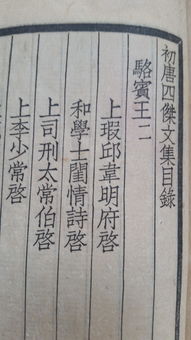 初唐四傑文集目錄
駱賓王二
上瑕邱韋明府啓
和學士閨情詩啓
上司刑太常伯啓
上李少常啓